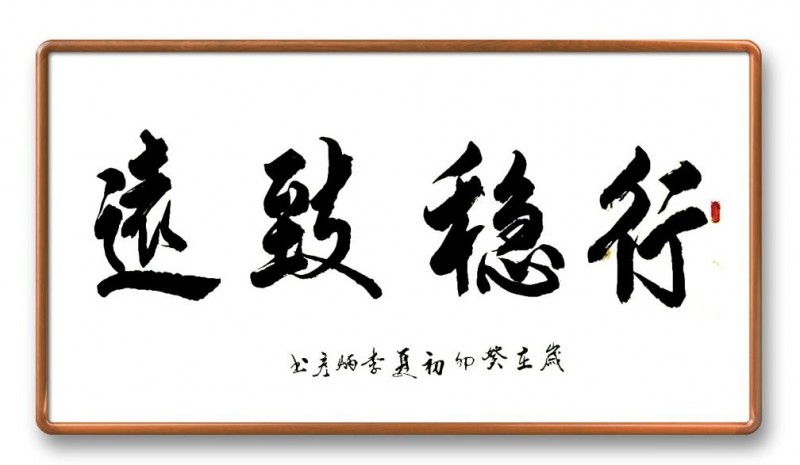 行稳致遠
歲在癸卯初夏李炳彦书